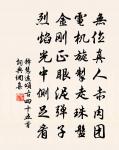 無位真人赤肉團
電機旋掣走珠盤
金剛正眼泥彈子
烈焰光中側足看
釋慧遠頌古四十五首
詞典網集